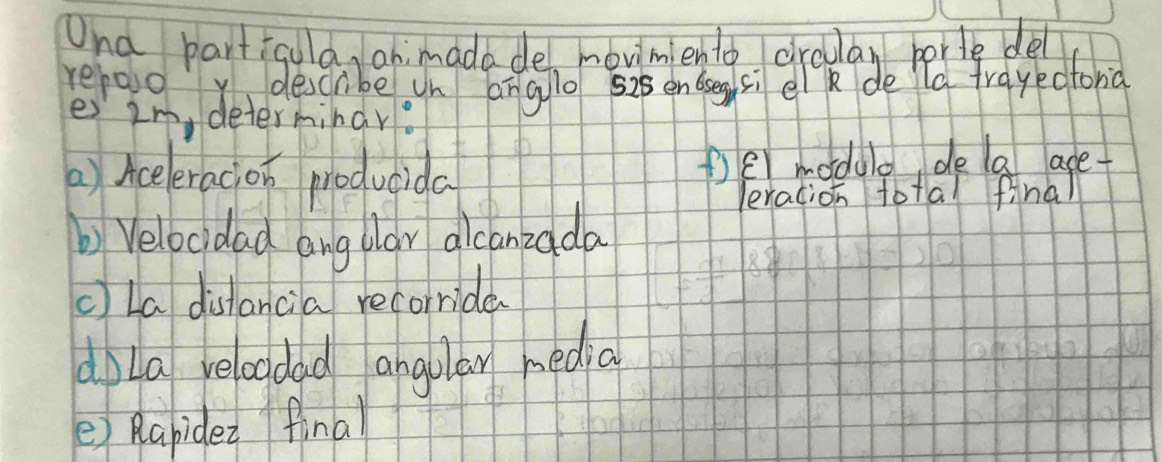 Una particula, animada de movimiento circular, parte del
reposo y describe un ángulo 525 en 6seg, si el R de la trayectoria
es 2m, determinar:
a) Aceleración producida
b) Velocidad angular alcanzada
c) La distancia recorrida
d) La velocidad angular media
e) Rapidez final
f) El modulo de la ace-
leración total final